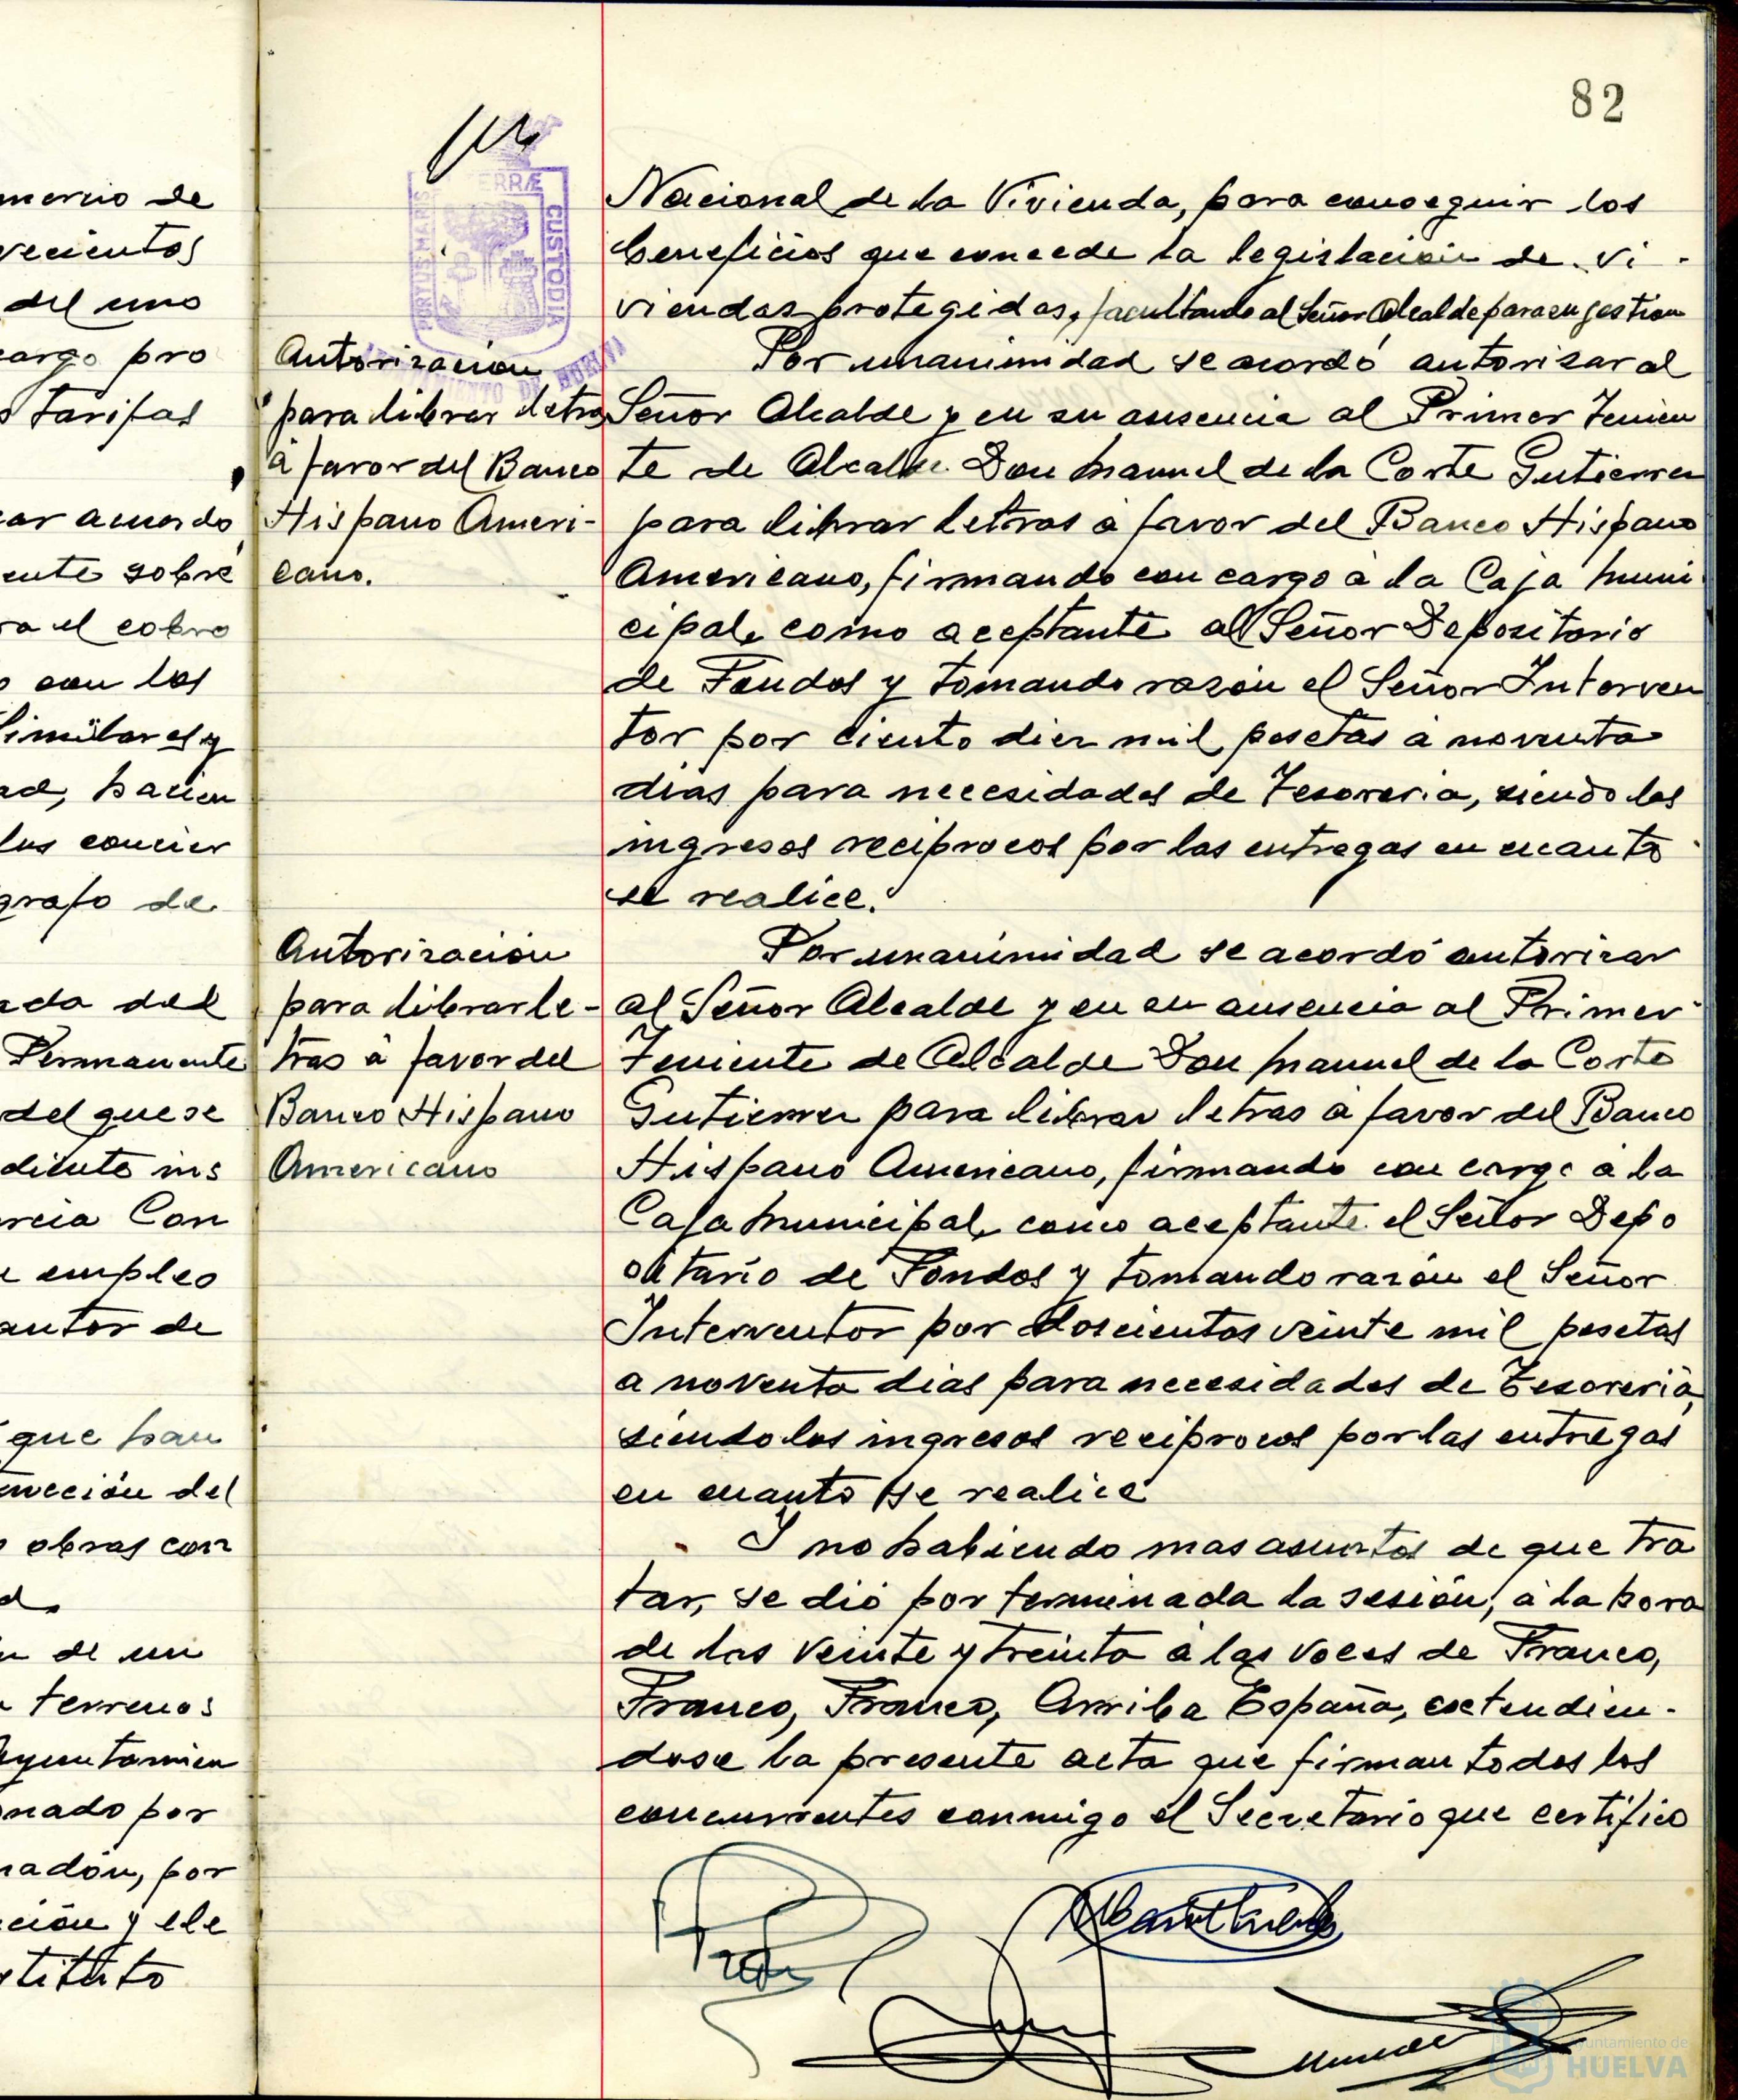 mercio de
vecientos
del uno
cargo pro
tarifas
ar acuerdo
ente sobre
ra el cobro
o con los
Similares y
ad, hacien
los concier
grafo de
ada del
Permanente
del que se
diente ins
rcia Con
e empleo
autor de
que han
ucción del
obras con
d.
n de un
terrenos
Ayuntamien
nado por
nadón, por
ción y ele
stituto
82
PORTUS MARIS
TERRÆ
CUSTODIA
AYUNTAMIENTO DE HUELVA
Autorización
para librar letras
a favor del Banco
Hispano Ameri-
cano.
Autorización
para librar le-
tras a favor del
Banco Hispano
Americano
Nacional de la Vivienda, para conseguir los
beneficios que concede la legislación de vi-
viendas protegidas, facultando al Señor Alcalde para su gestion
Por unanimidad se acordó autorizar al
Señor Alcalde y en su ausencia al Primer Tenien
te de Alcalde Don Manuel de la Corte Gutierrez
para librar letras a favor del Banco Hispano
Americano, firmando con cargo a la Caja Muni
cipal, como aceptante al Señor Depositario
de Fondos y tomando razón el Señor Interven
tor por ciento diez mil pesetas a noventa
dias para necesidades de Tesoreria, siendo los
ingresos reciprocos por las entregas en cuanto
se realice.
Por unanimidad se acordó autorizar
al Señor Alcalde y en su ausencia al Primer
Teniente de Alcalde Don Manuel de la Corte
Gutierrez para librar letras a favor del Banco
Hispano Americano, firmando con cargo a la
Caja Municipal, como aceptante el Señor Depo
sitario de Fondos y tomando razón el Señor
Interventor por doscientas veinte mil pesetas
a noventa dias para necesidades de Tesoreria,
siendo los ingresos reciprocos por las entregas
en cuanto se realice
Y no habiendo mas asuntos de que tra
tar, se dió por terminada la sesión, a la hora
de las veinte y treinta a las voces de Franco,
Franco, Franco, Arriba España, extendien-
dose la presente acta que firman todos los
concurrentes conmigo el Secretario que certifico
Ayuntamiento de
HUELVA